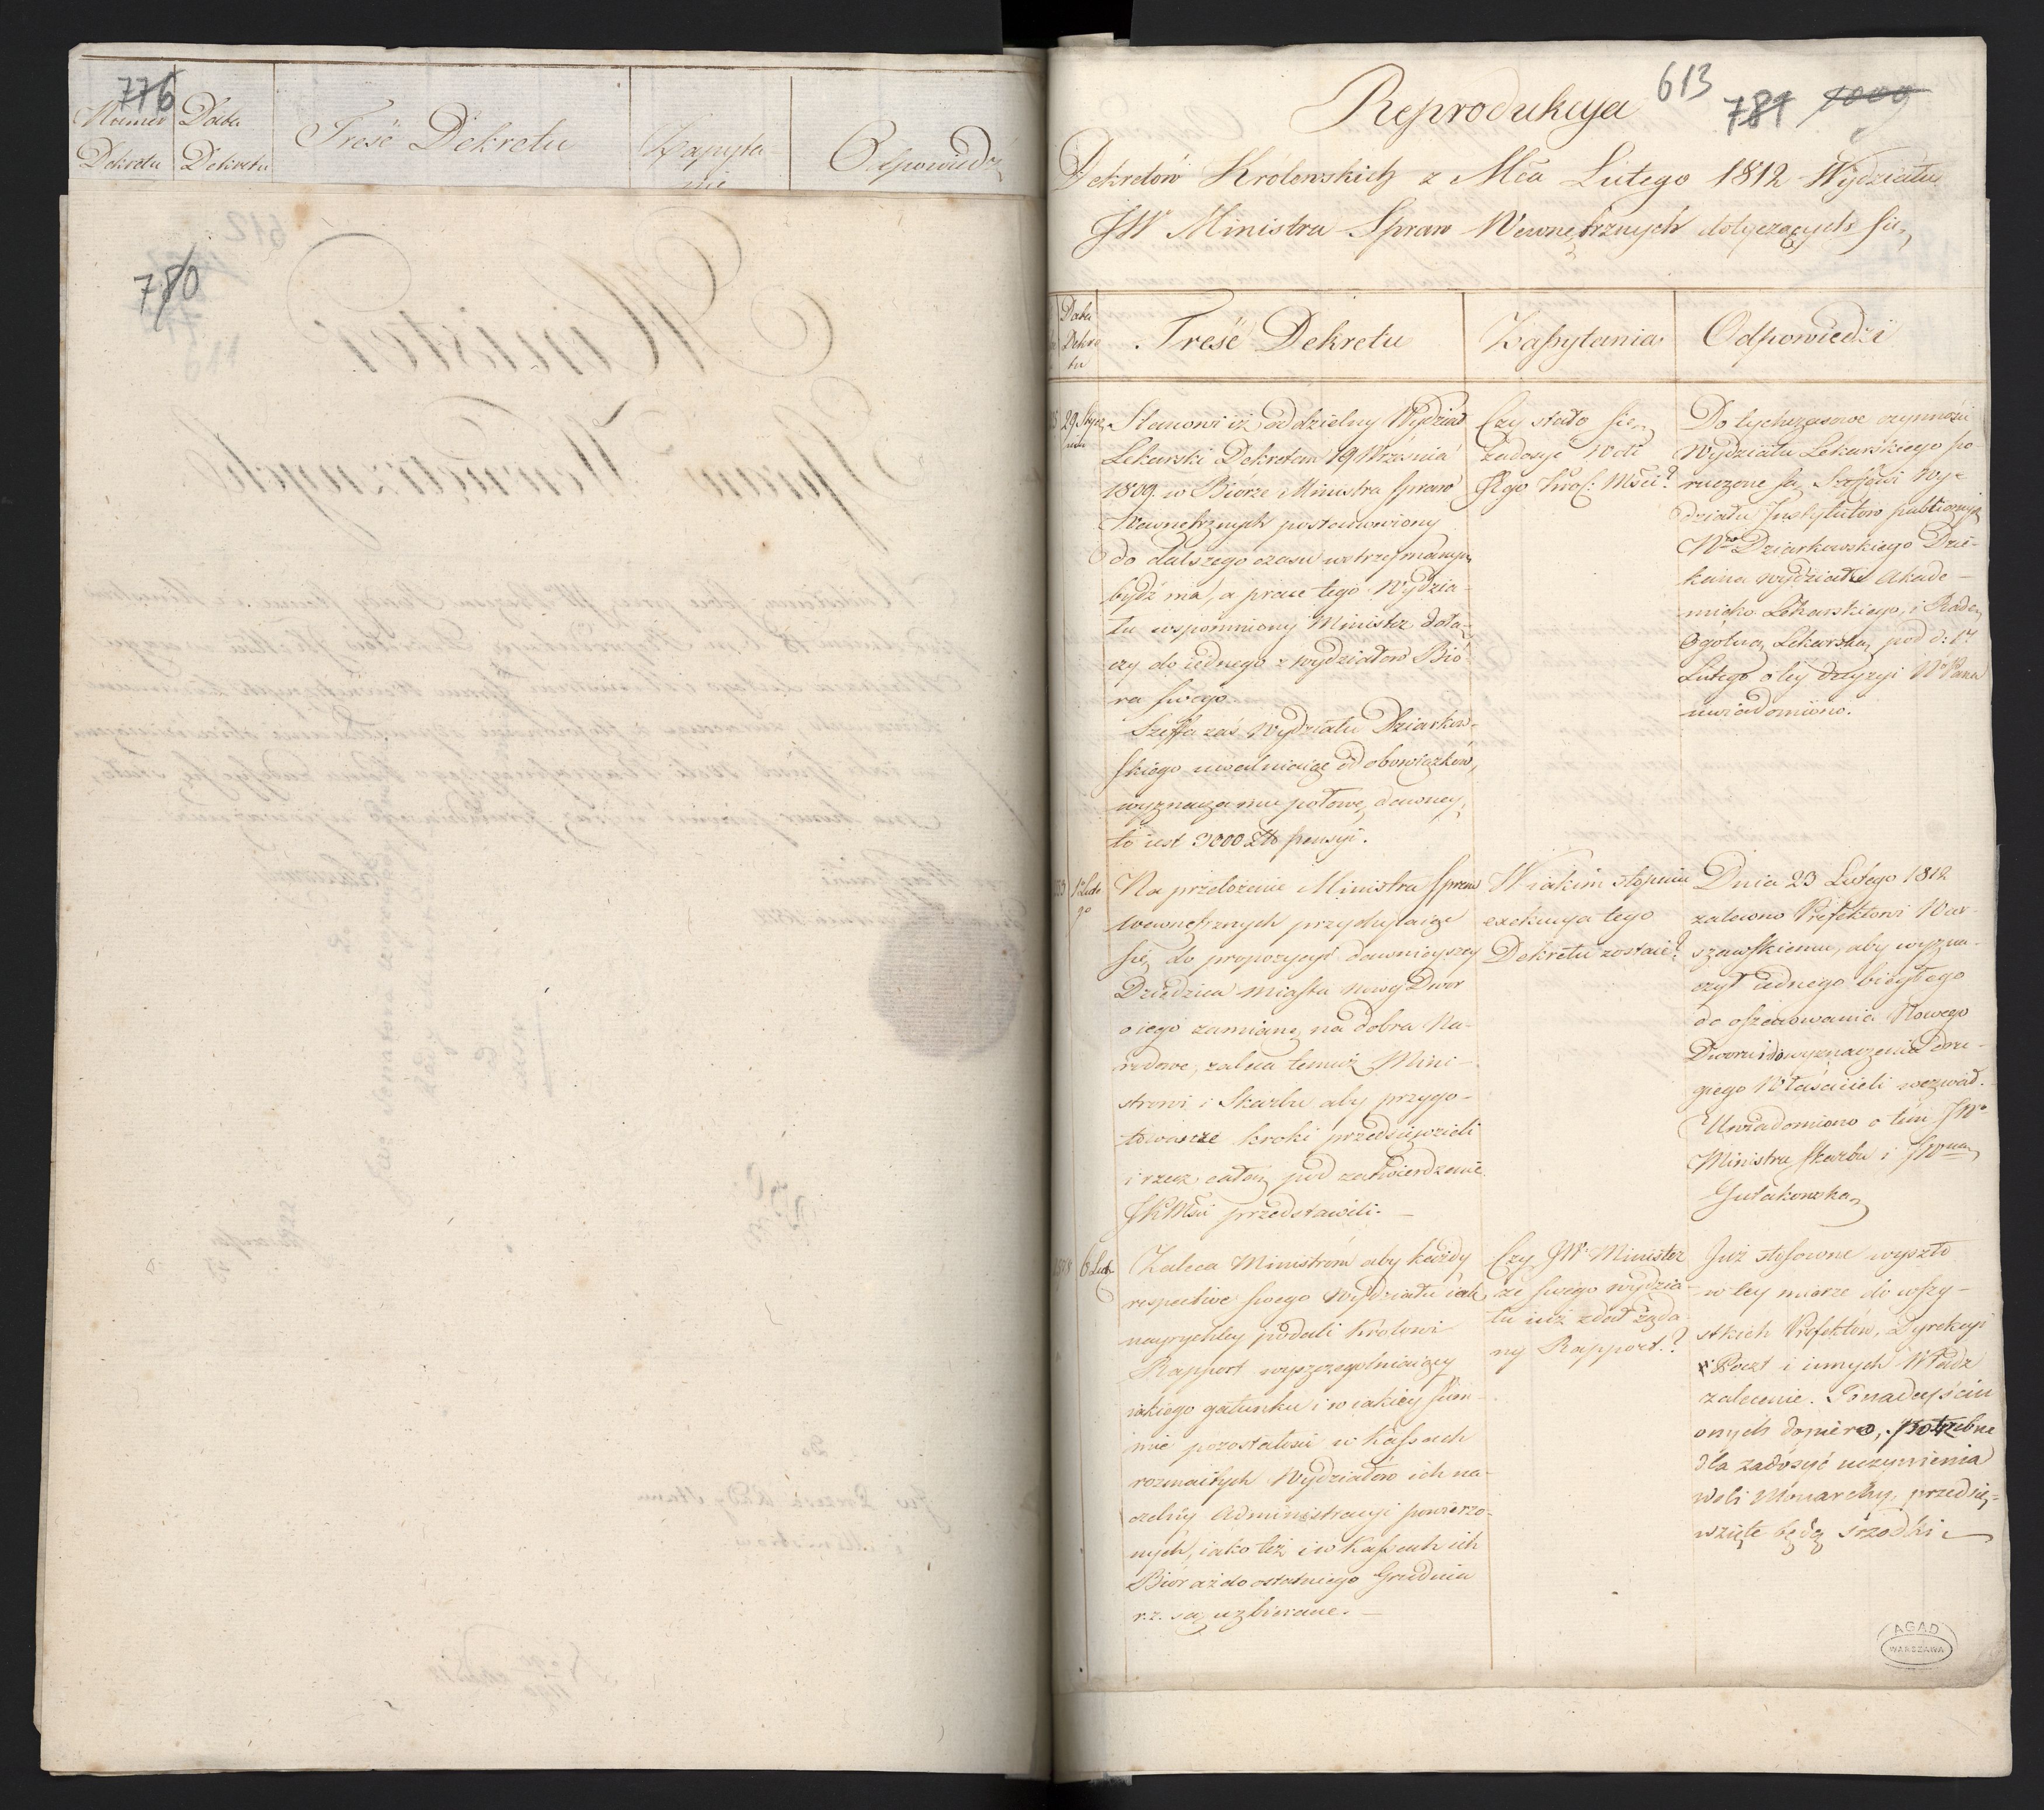 776
Numer Dekretu
Data Dekretu
Treść Dekretu
Zapyta
nie
Odpowiedź
780
Reprodukcya
613
781
1009
Dekretów Królewskich z Mca Lutego 1812 Wydziału
JW Ministra Spraw Wewnętrznych dotyczących się
Data
Dekre
tu
Treść Dekretu
Zapytania
Odpowiedzi
29 Stycz
nia
Stanowi iż oddzielny Wydział
Lekarski Dekretem 19 Września
1809 w Biorze Ministra Spraw
Wewnętrznych postanowiony
do dalszego czasu wstrzymanym
bydź ma, a prace tego Wydzia-
łu wspomniony Minister dołą-
czy do iednego z wydziałów Bió
ra swego.
Szeffa zaś Wydziału Dziarkow-
skiego uwalniaiąc od obowiązków,
wyznacza mu połowę dawney,
to iest 3000 Zło pensyi.
Czy stało się
zadosyć Woli
JKgo Król: Mści?
Dotychczasowe czynności
Wydziału Lekarskiego po-
ruczone są Szefowi Wy-
działu Instytutów publicznych
Wgo Dziarkowskiego Dzie-
kana wydziału Akade-
micko Lekarskiego, i Radę
Ogólną Lekarską pod d: 17
Lutego o tey decyzyi W Pana
uwiadomiono.
1 Lute
go
Na przełożenie Ministra Spraw
wewnętrznych przychylaiąc
się do propozycyi dawnieyszey
Dziedzica miasta Nowy Dwor
o iego zamianę na dobra Na-
rodowe, zaleca temuż Mini-
strowi i Skarbu aby przygo-
towawcze kroki przedsięwzieli
i rzecz całą pod zatwierdzenie
JKMści przedstawili. —
W iakim stopniu
exekucya tego
Dekretu zostaie?
Dnia 23 Lutego 1812
zalecono Prefektowi War-
szawskiemu, aby wyzna-
czył iednego biegłego
do oszacowania Nowego
Dworu i do wyznaczenia dru-
giego Właścicieli wezwał.
Uwiadomiono o tém JWo
Ministra Skarbu i JWną
Gutakowską
6 Lute
Zaleca Ministróm aby każdy
respective swego Wydziału iak
nayrychley podali Krolowi
Rapport wyszczegolniaiący
iakiego gatunku i w iakiey sum-
mie pozostałości w Kassach
rozmaitych Wydziałów ich na-
czelney Administracyi powierzo-
nych, iako też i w Kassach ich
Biór aż do ostatniego Grudnia
r.z. są uzbierane. —
Czy JW Minister
ze swego wydzia-
łu iuż zdał żąda-
ny Rapport?
Już stosowne wyszło
w tey mierze do wszy-
stkich Prefektów, Dyrekcyi
Poczt i innych Władz
zalecenie. Po nadeyściu
onych dopiero, potrzebne
dla zadosyć uczynienia
woli Monarchy, przedsię-
wzięte będą środki
AGAD
WARSZAWA